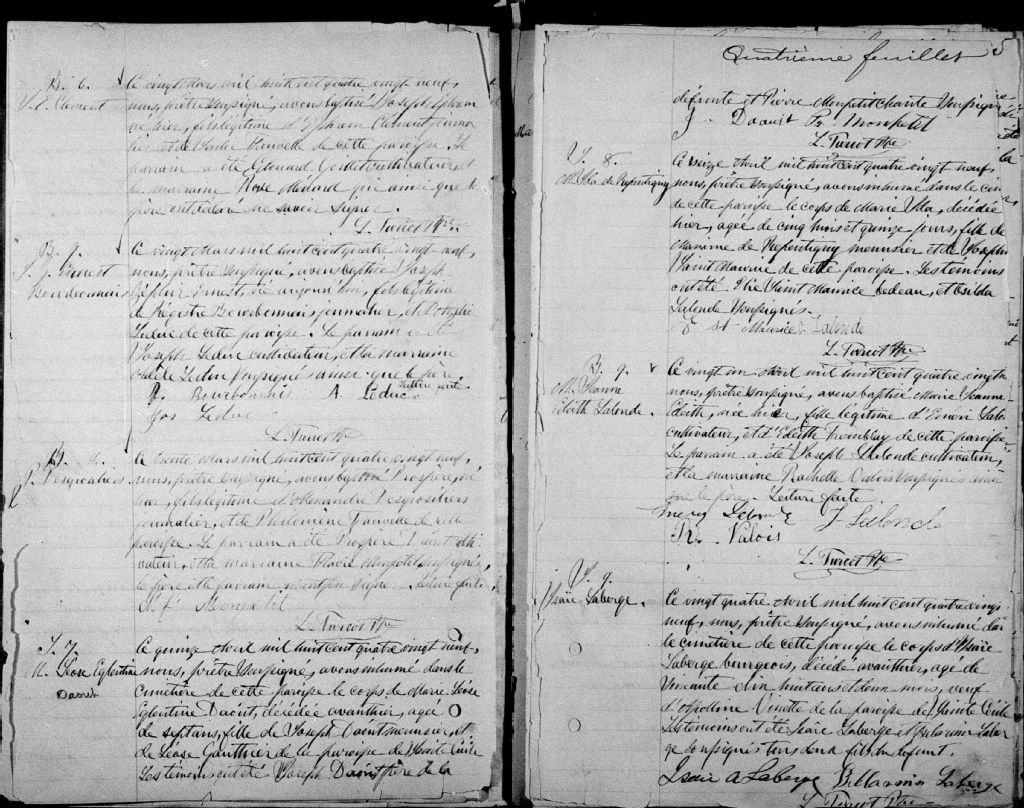 B. 6.
J. E. Clement
Ce vingt Mars mil huit cent quatre vingt neuf,
nous, prêtre soussigné, avons baptisé Joseph Ephrem
né hier, fils légitime d'Ephrem Clement,
et de de cette paroisse. Le
parrain a été Edouard cultivateur, et
la marraine Rose Ménard qui ainsi que le
père ont déclaré ne savoir signer.
L. Turcot Ptre
B. 7.
J. Z. Ernest
Bourbonnais
Ce vingt Mars mil huit cent quatre vingt neuf
nous, prêtre soussigné, avons baptisé Joseph
Zéphir Ernest, né aujourd'hui, fils légitime
de Régistre Bourbonnais journalier, et
Leduc de cette paroisse. Le parrain a été
Joseph Leduc cultivateur, et la marraine
Leduc soussignés ainsi que le père.
Lecture faite
R. Bourbonnais A. Leduc
Jos Leduc
L. Turcot Ptre
B. 8.
P. Desgroseliers
Ce trente Mars mil huit cent quatre vingt neuf,
nous, prêtre soussigné, avons baptisé Prospère, né
hier, fils légitime d'Alexandre Desgroseliers
journalier, et de Philomène de cette
paroisse. Le parrain a été Prospère culti-
vateur, et la marraine Monpetit soussignée,
le père et le parrain n'ont pu signer. Lecture faite,
Monpetit
L. Turcot Ptre
S. 7.
M. Léose Eglentine
Daout
Ce quinze Avril mil huit cent quatre vingt neuf,
nous, prêtre soussigné, avons inhumé dans le
cimetière de cette paroisse le corps de Marie Léose
Eglentine Daout, décédée avanthier, agée
de sept ans, fille de Joseph Daout meunier, et
de Léose Gauthier de la paroisse de Sainte
Les témoins ont été Joseph Daout père de la
Quatrième feuillet 5
défunte et Pierre Monpetit Chantre soussignés
J. Daout Monpetit
L. Turcot Ptre
S. 8.
M. Ida de Repentigny
Ce seize Avril mil huit cent quatre vingt neuf,
nous, prêtre soussigné, avons inhumé dans le cim
de cette paroisse le corps de Marie Ida, décédée
hier, agée de cinq mois et quinze jours, fille de
de Repentigny meunier et de Josephine
Saint Maurice de cette paroisse. Les témoins
ont été Elie Saint Maurice bedeau, et Exilda
Lalonde soussignés.
E St Maurice E Lalonde
L. Turcot Ptre
B. 9.
M. Jeanne
Edith Lalonde.
Ce vingt un Avril mil huit cent quatre vingt n
nous, prêtre soussigné, avons baptisé Marie Jeanne
Edith, née hier, fille légitime d'Emeri Lalo
cultivateur, et d'Edith Tremblay de cette paroisse.
Le parrain a été Joseph Lalonde cultivateur,
et la marraine Rachelle Valois soussignés ainsi
que le père. Lecture faite.
Emery Lalonde J Lalonde
R. Valois
L. Turcot Ptre
S. 9.
Isaïe Laberge.
Ce vingt quatre Avril mil huit cent quatre vingt
neuf, nous, prêtre soussigné, avons inhumé dans
le cimetière de cette paroisse le corps d'Isaïe
Laberge bourgeois, décédé avanthier, agé de
soixante dix huit ans et deux mois, veuf
d'Apolline Vinette de la paroisse de Sainte Cécile
Les témoins ont été Isaïe Laberge et Bellarmin Laber
ge soussignés tous deux fils du défunt.
Isaie A Laberge Bellarmin Laberge
L. Turcot Ptre